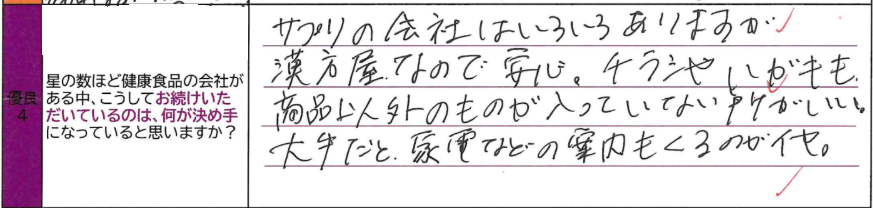 優良
4
星の数ほど健康食品の会社が
ある中、こうしてお続けいた
だいているのは、何が決め手
になっていると思いますか？
サプリの会社はいろいろありますが
漢方屋なので安心。チラシやハガキも、
商品以外のものが入っていない所がいい。
大手だと、家電などの案内もくるのがイヤ。